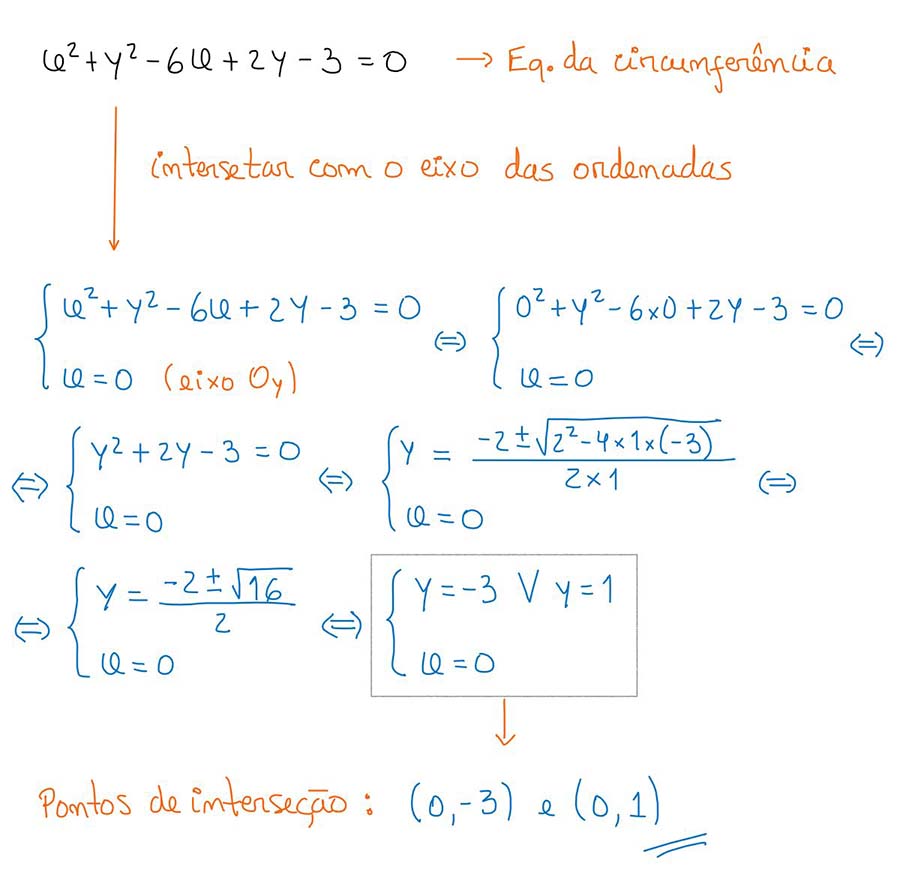 x² + y² - 6x + 2y - 3 = 0 → Eq. da circunferência
intersetar com o eixo das ordenadas
{ x² + y² - 6x + 2y - 3 = 0 ⇔ { 0² + y² - 6×0 + 2y - 3 = 0 ⇔
x = 0 (eixo Oy) x = 0
⇔ { y² + 2y - 3 = 0 ⇔ { y = (-2 ± √(2² - 4×1×(-3))) / (2×1) ⇔
x = 0 x = 0
⇔ { y = (-2 ± √16) / 2 ⇔ { y = -3 ∨ y = 1
x = 0 x = 0
Pontos de interseção : (0,-3) e (0,1)